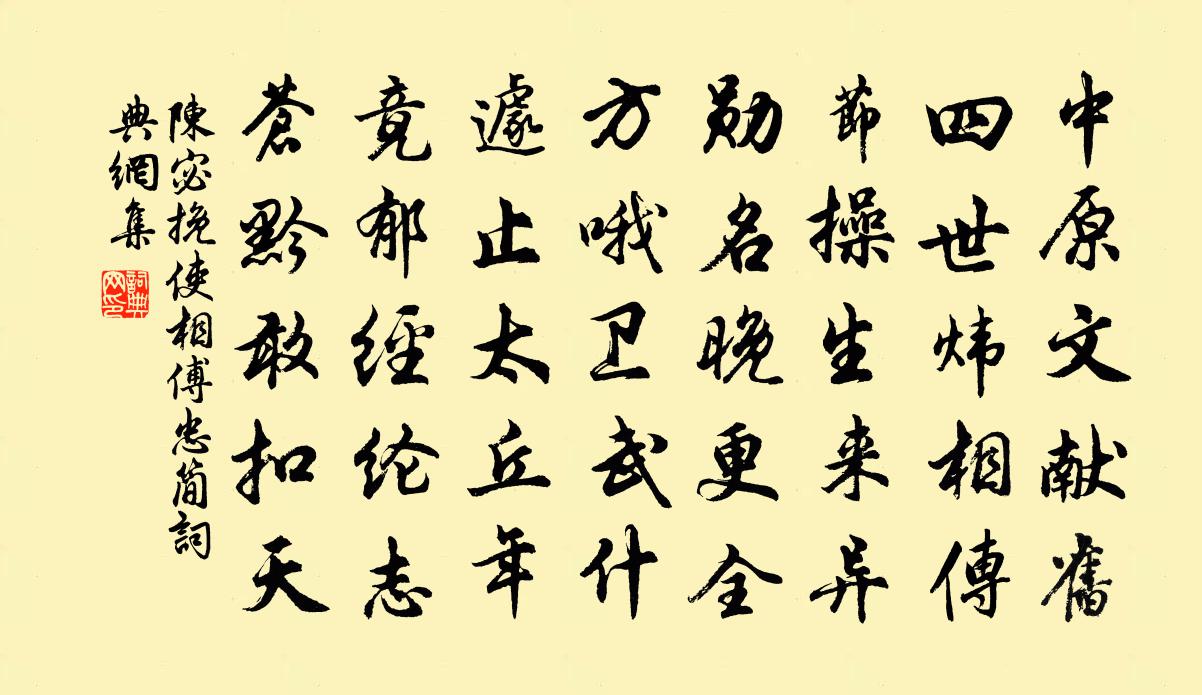 中原文献舊
四世炜相傳
節操生来异
勋名晚更全
方哦卫武什
遽止太丘年
竟郁經纶志
蒼黔敢扣天
陳宓挽使相傅忠简詞
典網集
詞典
网印